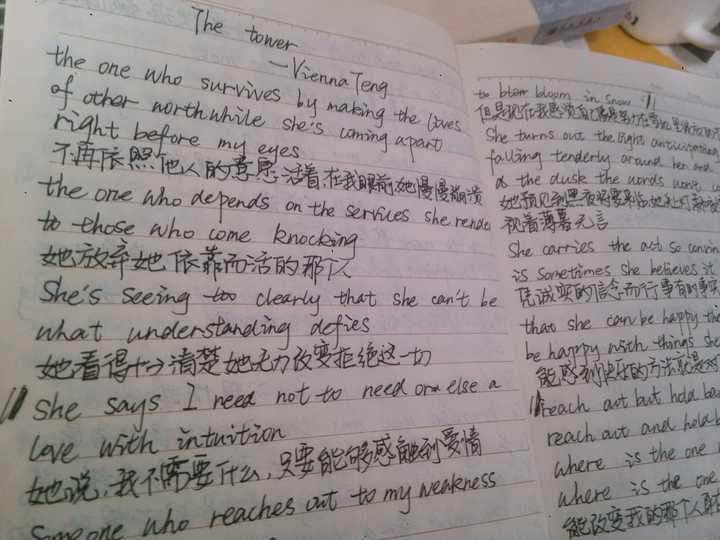 The tower
—Vienna Teng
the one who survives by making the lives
of other worthwhile she's coming apart
right before my eyes
不再依照他人的意愿活着,在我眼前她慢慢崩溃
the one who depends on the services she rende
to those who come knocking
她放弃她依靠而活的那个人
She's seeing too clearly that she can't be
what understanding defies
她看得十分清楚她无力改变拒绝这一切
She says I need not to need or else a
love with intuition
她说,我不需要什么,只要能够感触到爱情
Someone who reaches out to my weakness
to bloom in snow
She turns out the light anticipating
falling tenderly around her and
the dusk the words won't
视着薄暮无言
She carries the act so convin
is sometimes she believes it
凭诚实的信念而行事有时
that she can be happy the
be happy with things she
能感到快乐的方法就是
reach out but hold ba
reach out and hold b
where is the one
where is the one
能改变我的那个人